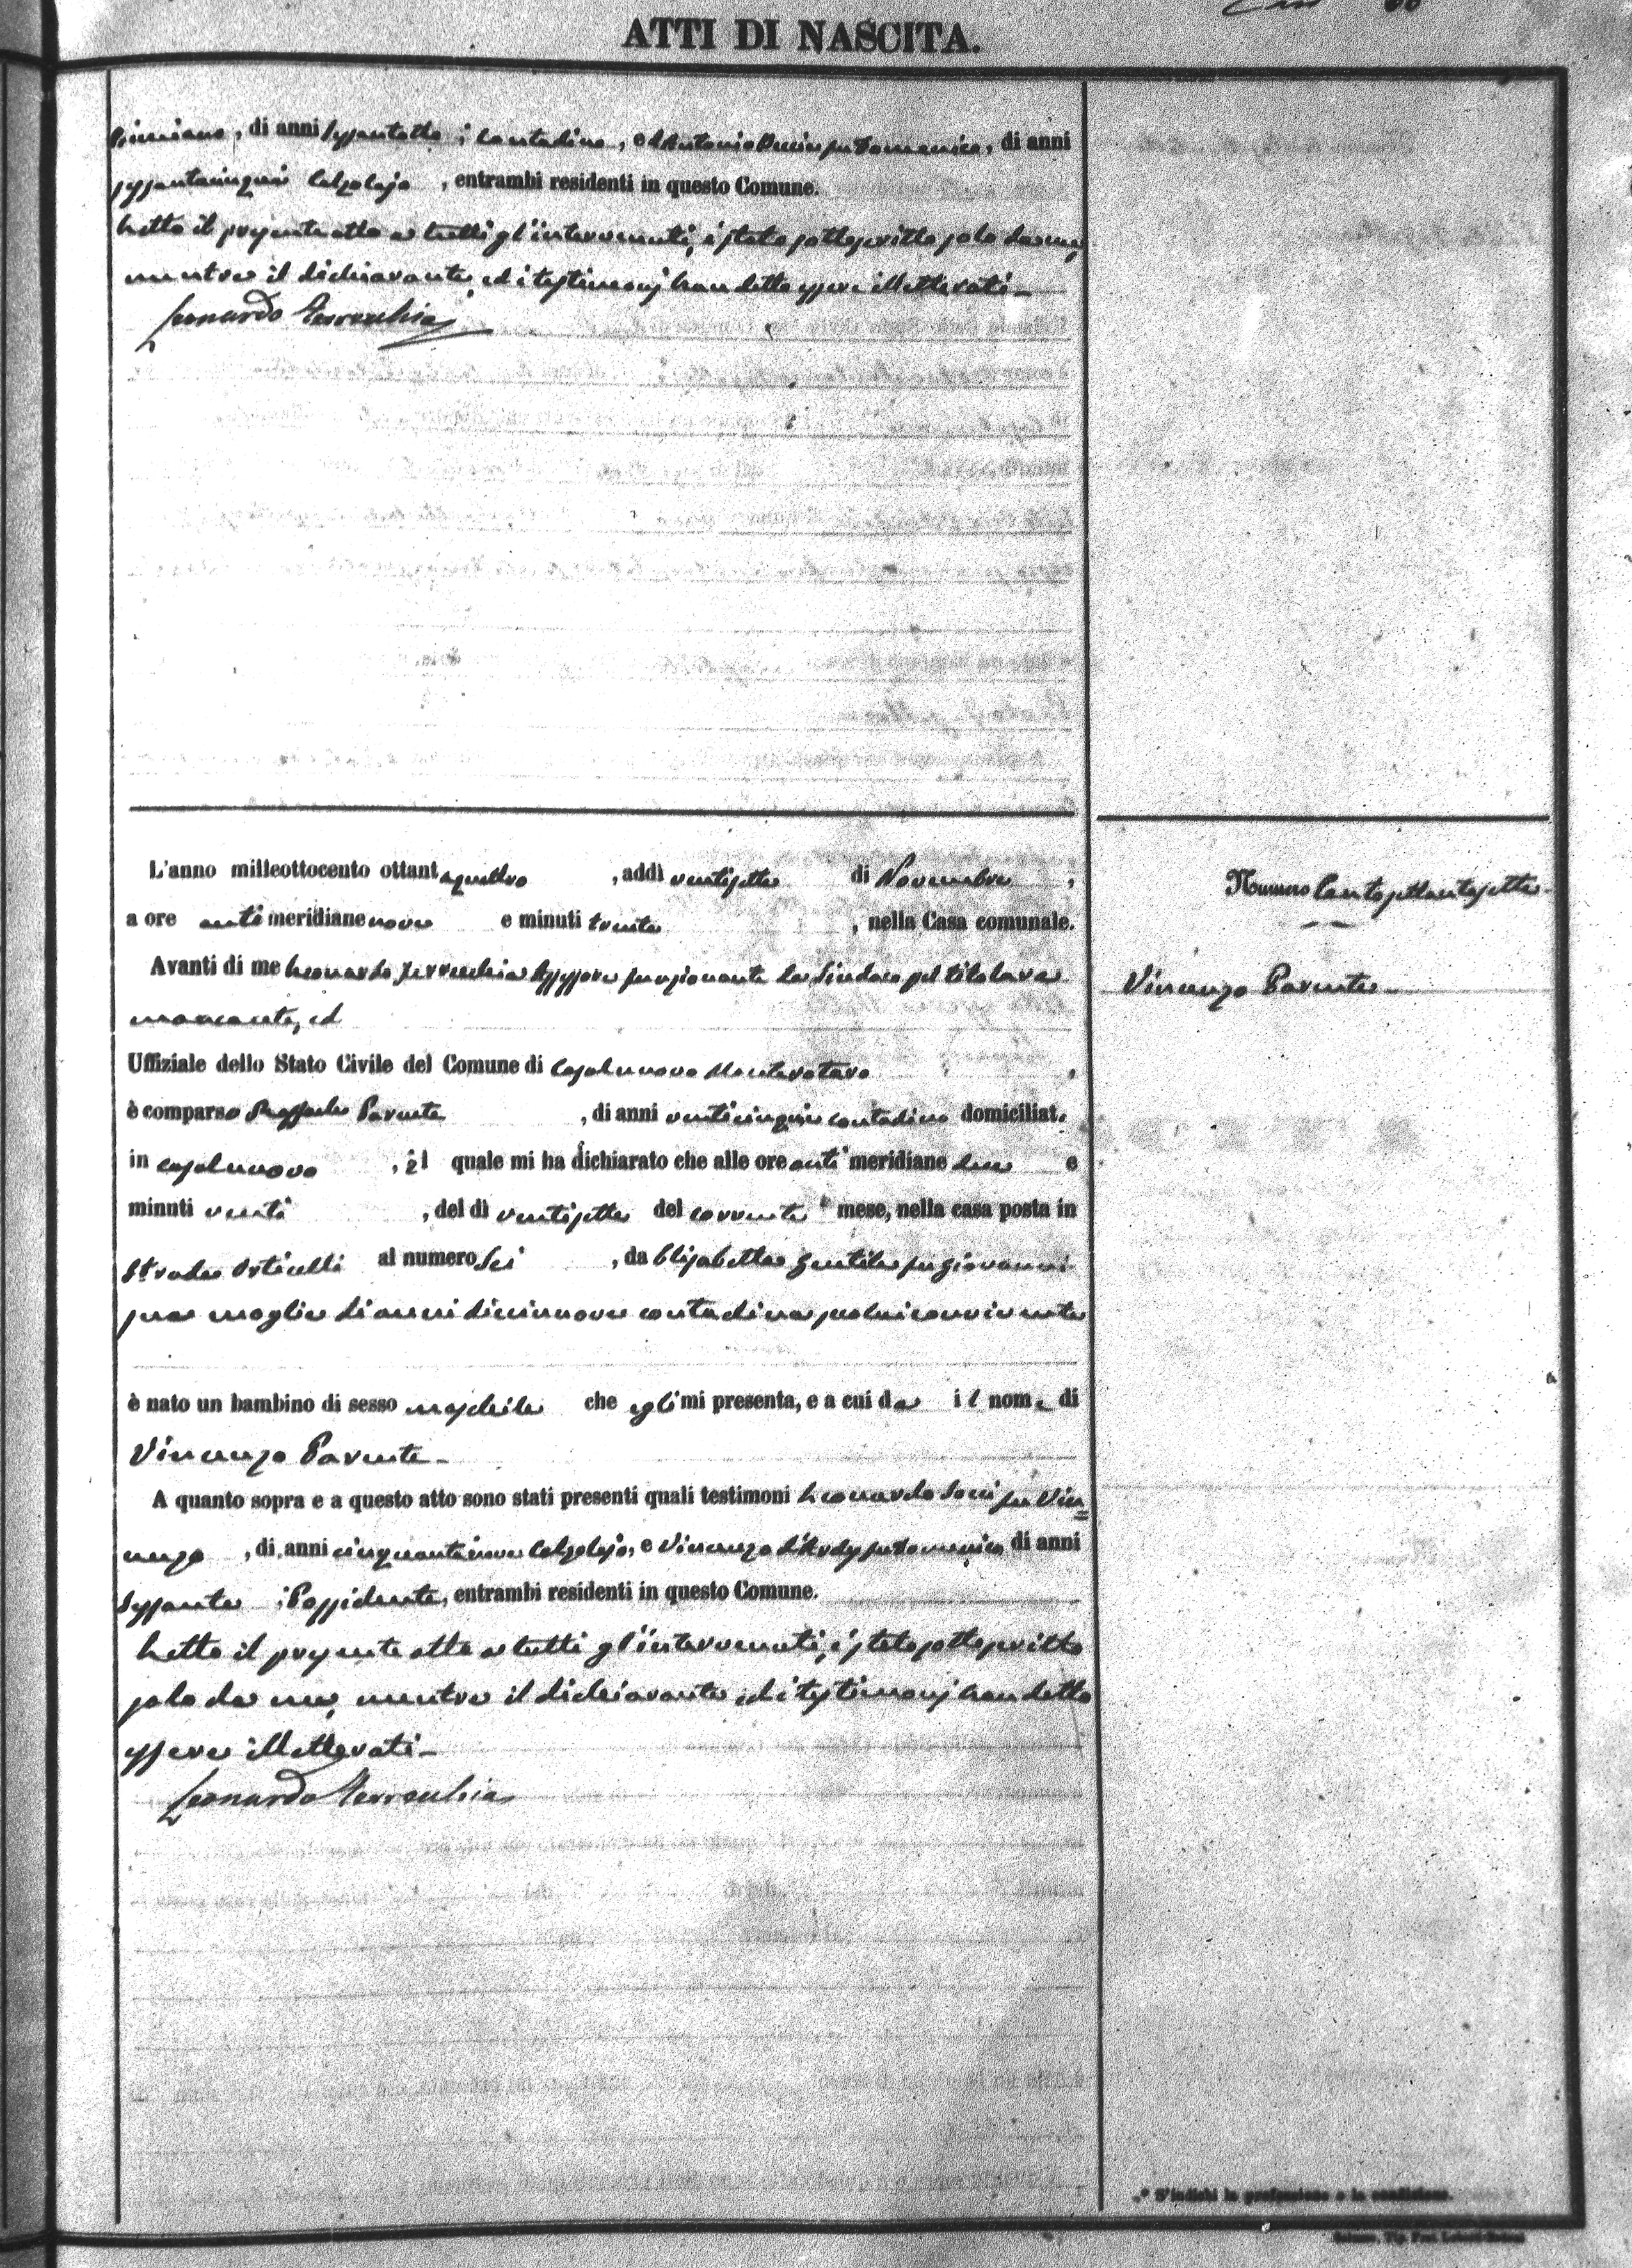 ATTI DI NASCITA.
di anni sessantotto, contadino, ed Antonio Ducci fu Domenico, di anni
sessantacinque Calzolajo, entrambi residenti in questo Comune.
Letto il presente atto a tutti gl'intervenuti, è stato sottoscritto solo da me,
mentre il dichiarante, ed i testimonj han detto essere illetterati-
Leonardo Terracchia
L'anno milleottocento ottantaquattro, addì ventisette di Novembre,
a ore antimeridiane nove e minuti trenta, nella Casa comunale.
Avanti di me Leonardo Terracchia Assessore funzionante da Sindaco pel titolare
mancante, ed
Uffiziale dello Stato Civile del Comune di Casalnuovo Monterotaro,
è comparso Raffaele Parente, di anni venticinque contadino domiciliato
in Casalnuovo, il quale mi ha dichiarato che alle ore antimeridiane due e
minuti venti, del dì ventisette del corrente mese, nella casa posta in
Strada Orticelli al numero Sei, da Elisabetta Gentile fu Giovanni
sua moglie di anni diciannove contadina seco lui convivente
è nato un bambino di sesso maschile che egli mi presenta, e a cui da il nome di
Vincenzo Parente-
A quanto sopra e a questo atto sono stati presenti quali testimoni Leonardo Socci fu Vin=
cenzo, di anni cinquantanove Calzolajo, e Vincenzo fu Domenico di anni
Sessanta, Possidente, entrambi residenti in questo Comune.
Letto il presente atto a tutti gl'intervenuti, è stato sottoscritto
solo da me, mentre il dichiarante, ed i testimonj han detto
essere illetterati-
Leonardo Terracchia
Numero Centosettantasette-
Vincenzo Parente-
* S'indichi la professione o la condizione.